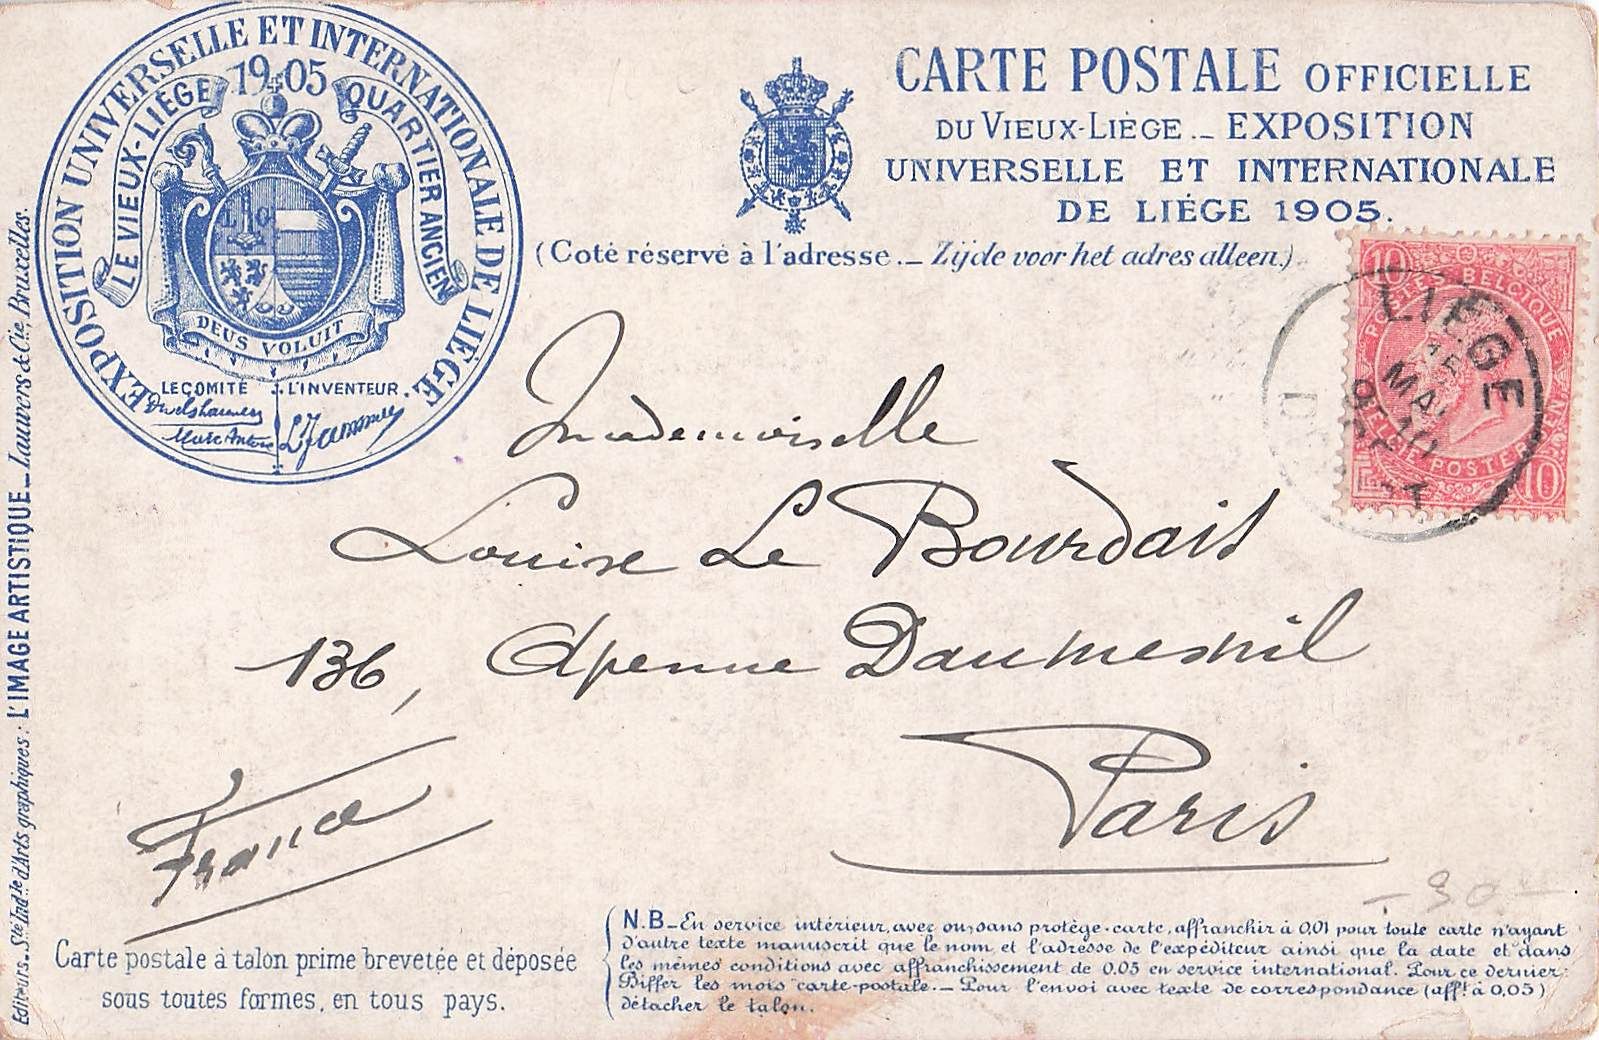 EXPOSITION UNIVERSELLE ET INTERNATIONALE DE LIÈGE
1905
LE VIEUX-LIÈGE QUARTIER ANCIEN
DEUS VOLUIT
LE COMITÉ L'INVENTEUR.
Marc Antoine
CARTE POSTALE OFFICIELLE
DU VIEUX-LIÈGE._ EXPOSITION
UNIVERSELLE ET INTERNATIONALE
DE LIÉGE 1905.
(Coté réservé à l'adresse._ Zijde voor het adres alleen.)
10 POSTES BELGIQUE
BELGIE POSTERIJEN 10
LIEGE
MAI
10
Mademoiselle
Louise Le Bourdais
136, Avenue Daumesnil
Paris
France
-30-
Carte postale à talon prime brevetée et déposée
sous toutes formes, en tous pays.
N.B_En service intérieur, avec ou sans protège-carte, affranchir à 0,01 pour toute carte n'ayant
d'autre texte manuscrit que le nom et l'adresse de l'expéditeur ainsi que la date et dans
les mêmes conditions avec affranchissement de 0,05 en service international. Pour ce dernier:
Biffer les mots carte-postale._ Pour l'envoi avec texte de correspondance (afft à 0,05)
détacher le talon.
Editeurs._Sté Indlle d'Arts graphiques: L'IMAGE ARTISTIQUE_Lauwers & Cie, Bruxelles.